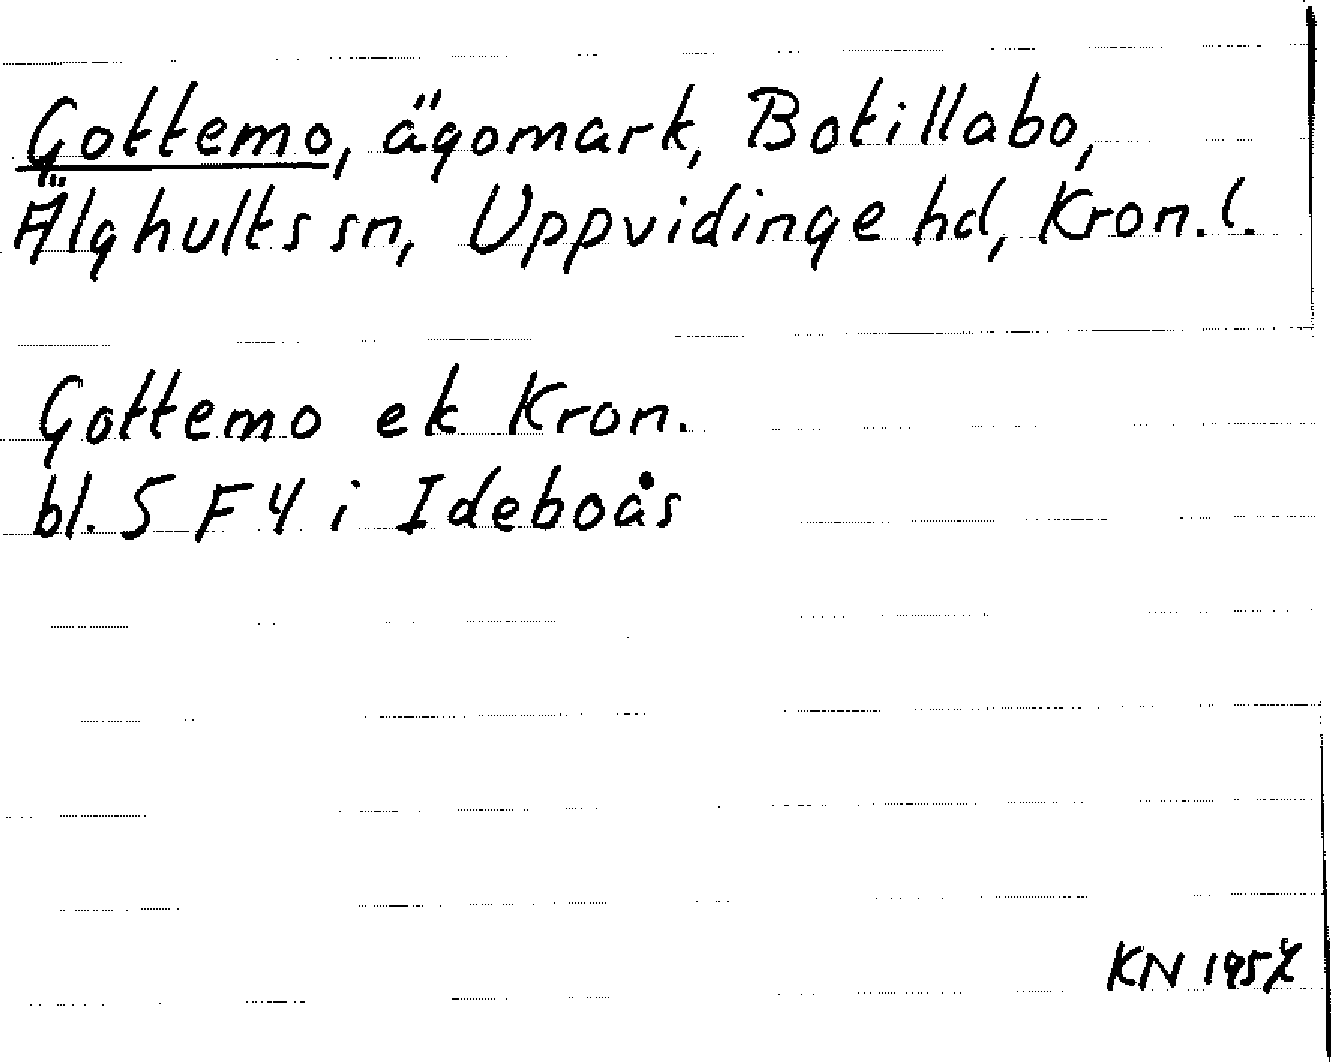 Gottemo, ägomark, Botillabo,
Älghults sn, Uppvidinge hd, Kron. l.
Gottemo ek Kron.
bl. 5 F 4 i Ideboås
KN